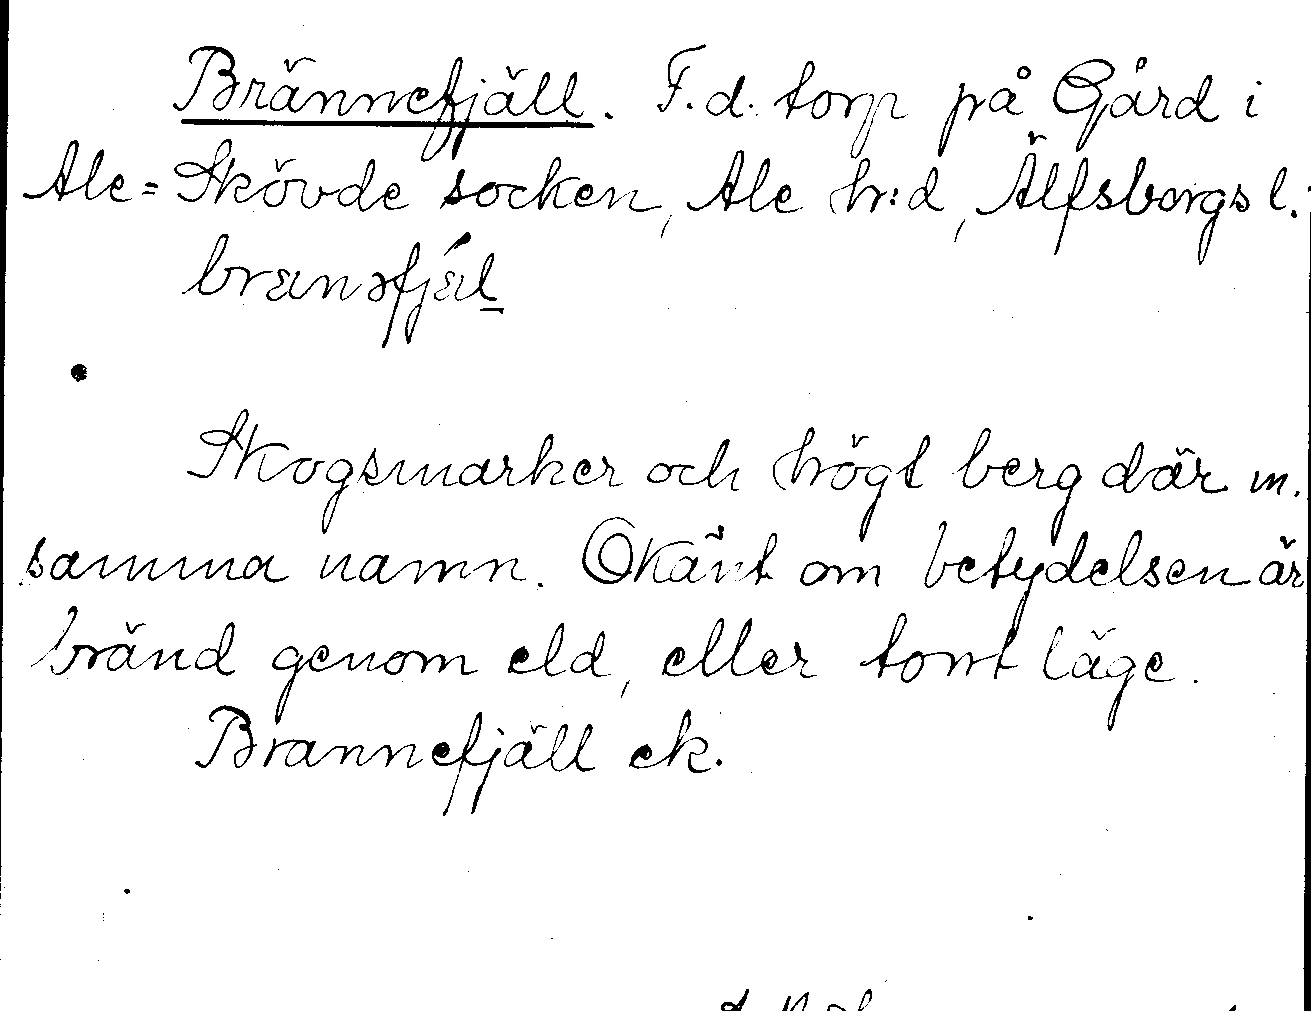 Brännefjäll. F.d. torp på Gård i
Ale=Skövde socken, Ale hr:d, Älfsborgs l.
brænəfjǽl
Skogsmarker och högt berg där m.
samma namn. Okänt om betydelsen är
bränd genom eld, eller tomt läge.
Brannefjäll ek.